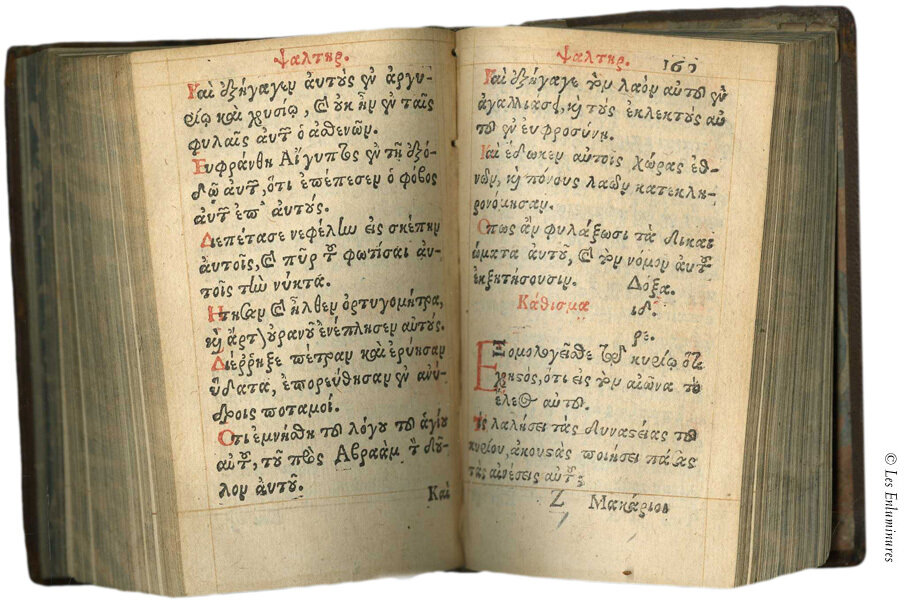 ψαλτηρ.
Καὶ ἐξήγαγεν ἀυτοὺς ἐν ἀργυ-
ρίῳ καὶ χρυσίῳ, καὶ ὀκ ἦν ἐν ταῖς
φυλαῖς ἀυτῶν ὁ ἀσθενῶν.
Ευφράνθη Αἴγυπτος ἐν τῇ ἐξό-
δῳ ἀυτῶν, ὅτι ἐπέπεσεν ὁ φόβος
ἀυτῶν ἐπ' ἀυτούς.
Διεπέτασε νεφέλην εἰς σκέπην
ἀυτοῖς, καὶ πῦρ τοῦ φωτίσαι ἀυ-
τοῖς τὴν νύκτα.
Ητησαν καὶ ἦλθεν ὀρτυγομήτρα,
καὶ ἄρτον οὐρανοῦ ἐνέπλησεν αὐτούς.
Διέρρηξε πέτραν καὶ ἐρύησαν
ὕδατα, ἐπορεύθησαν ἐν ἀνύ-
δροις ποταμοί.
Οτι ἐμνήσθη τοῦ λόγου τοῦ ἁγίου
αὐτοῦ, τοῦ πρὸς Αβραὰμ τὸν δοῦ-
λον ἀυτοῦ.
Καὶ
ψαλτηρ. 167
Καὶ ἐξήγαγε τὸν λαὸν αὐτοῦ ἐν
ἀγαλλιάσει, καὶ τοὺς ἐκλεκτοὺς αὐ
τοῦ ἐν ευφροσύνῃ.
Καὶ ἔδωκεν αὐτοῖς χώρας ἐθ-
νῶν, καὶ πόνους λαῶν κατεκλη-
ρονόμησαν.
Οπως ἂν φυλάξωσι τὰ δικαι
ώματα ἀυτοῦ, καὶ τὸν νόμον ἀυτοῦ
ἐκζητήσουσιν. Δόξα.
Κάθισμα ιδ.
ρε.
Εξομολογεῖσθε τῷ κυρίῳ ὅτι
χρηστός, ὅτι εἰς τὸν αἰῶνα τὸ
ἔλεος αὐτοῦ.
Τίς λαλήσει τὰς δυναστείας τοῦ
κυρίου, ἀκουστὰς ποιήσει πάσας
τὰς αἰνέσεις αὐτοῦ;
Z Μακάριοι
© Les Enluminures